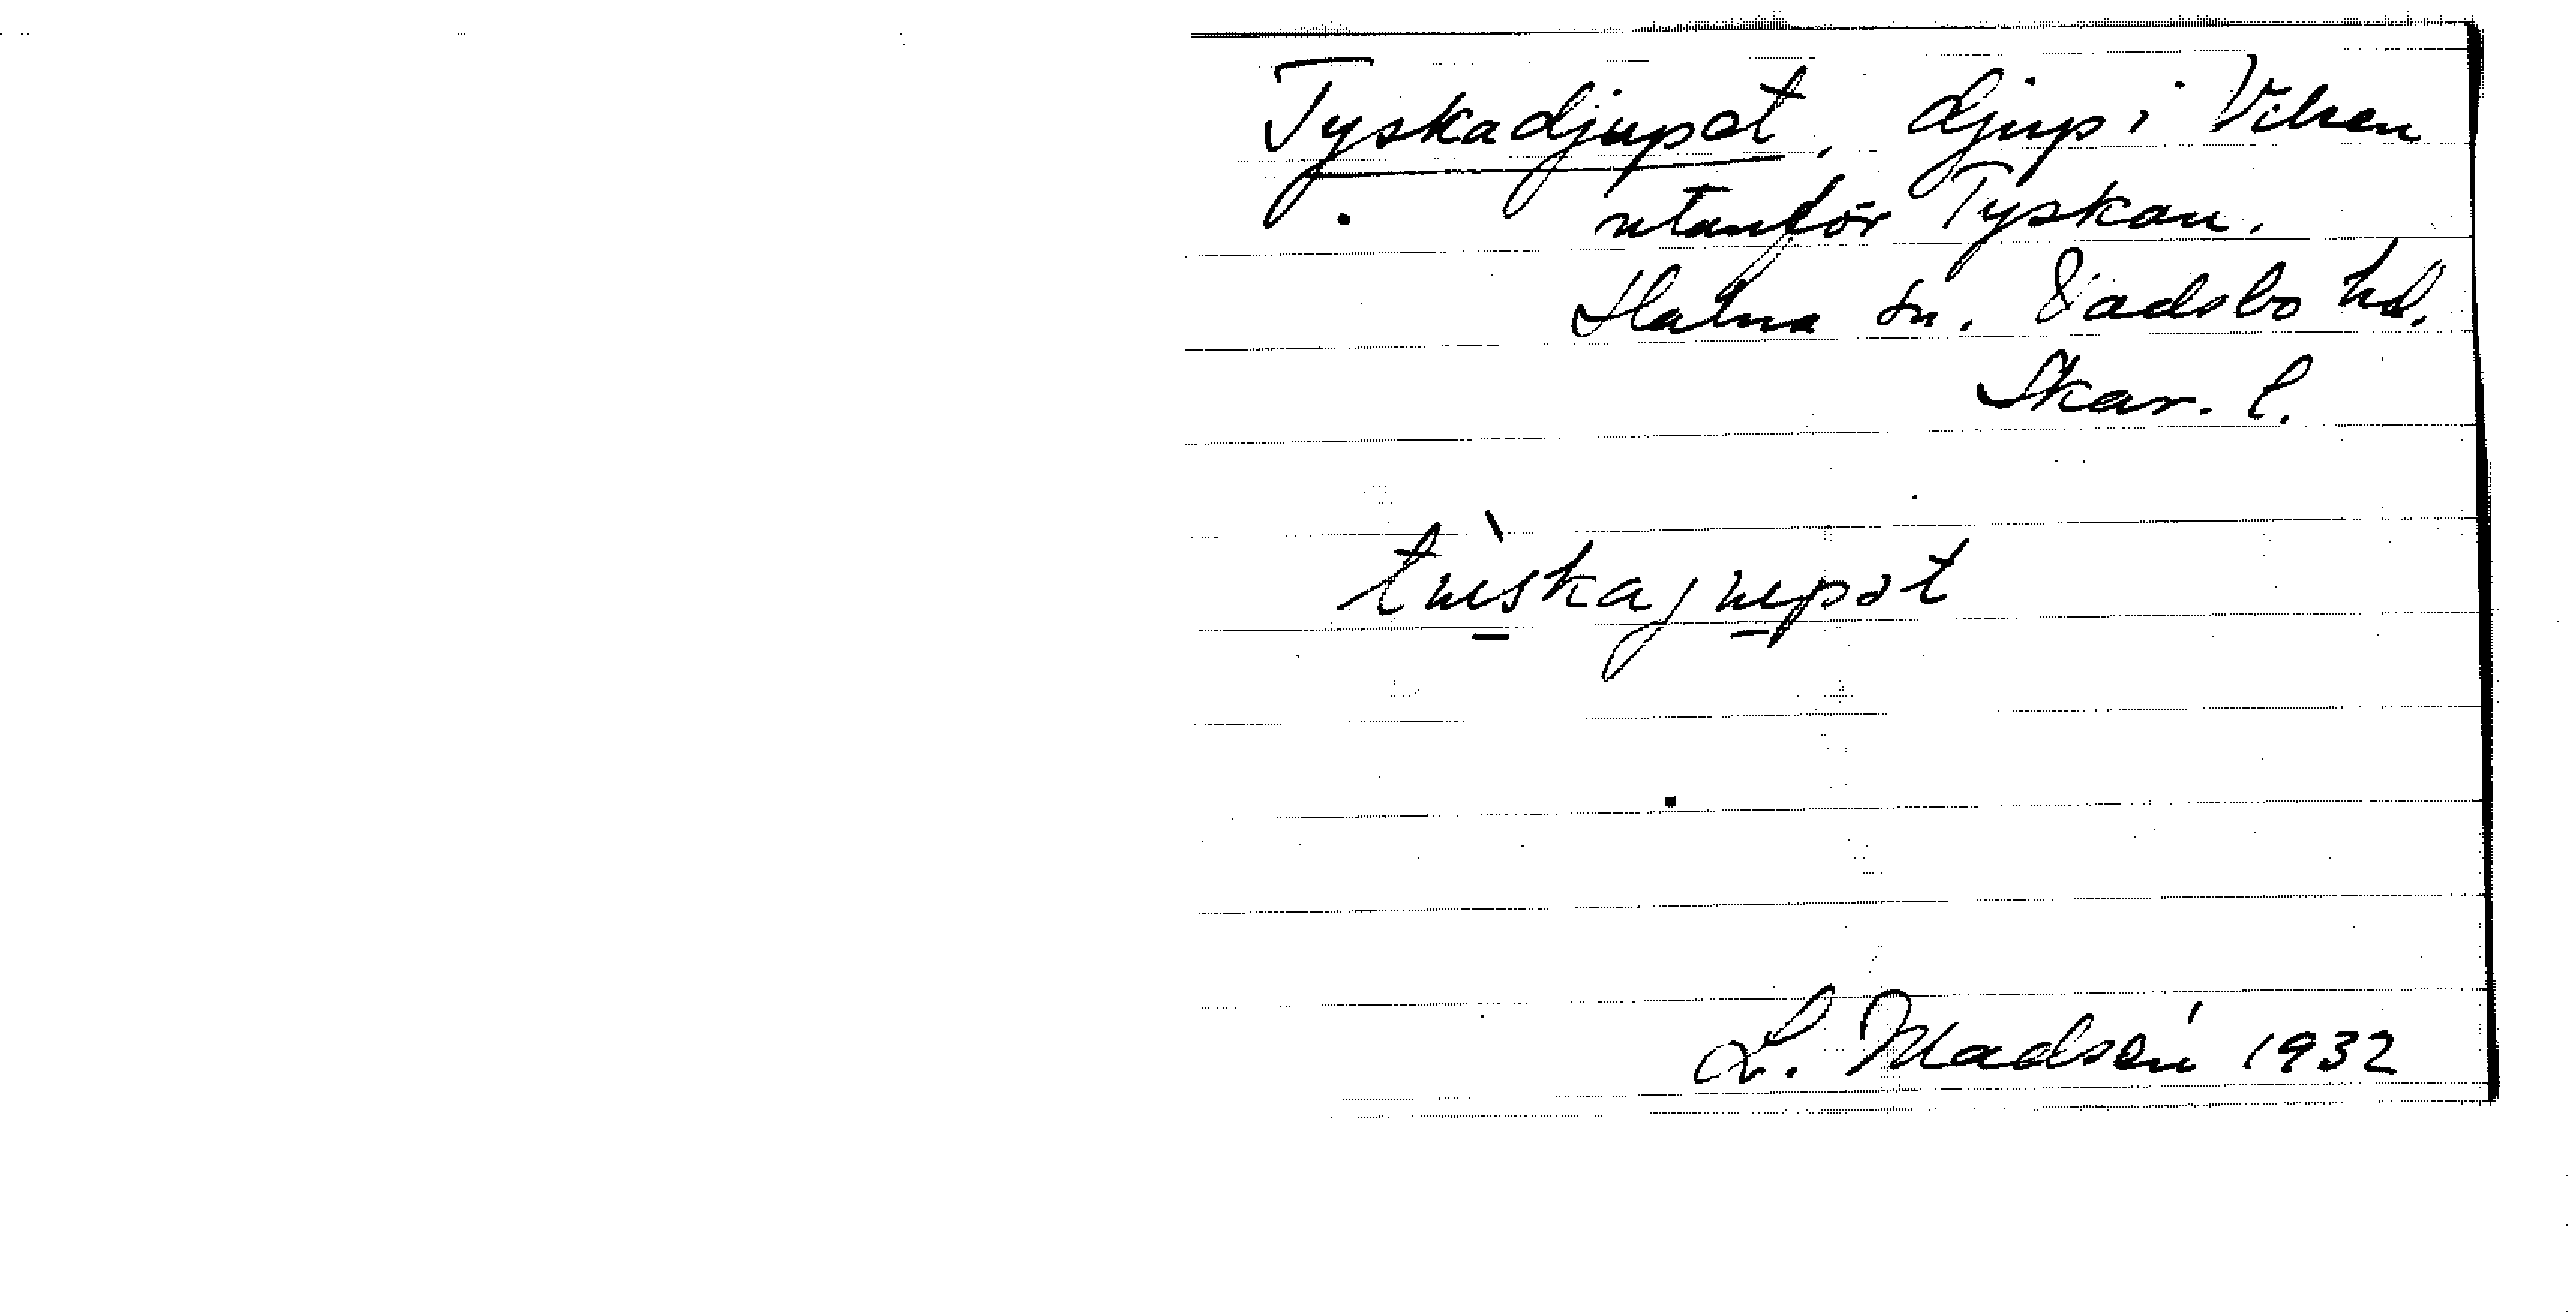 Tyskadjupet, djup i Viken
utanför Tyskan.
Halna sn. Vadsbo hd.
Skar. l.
L. Madsén 1932